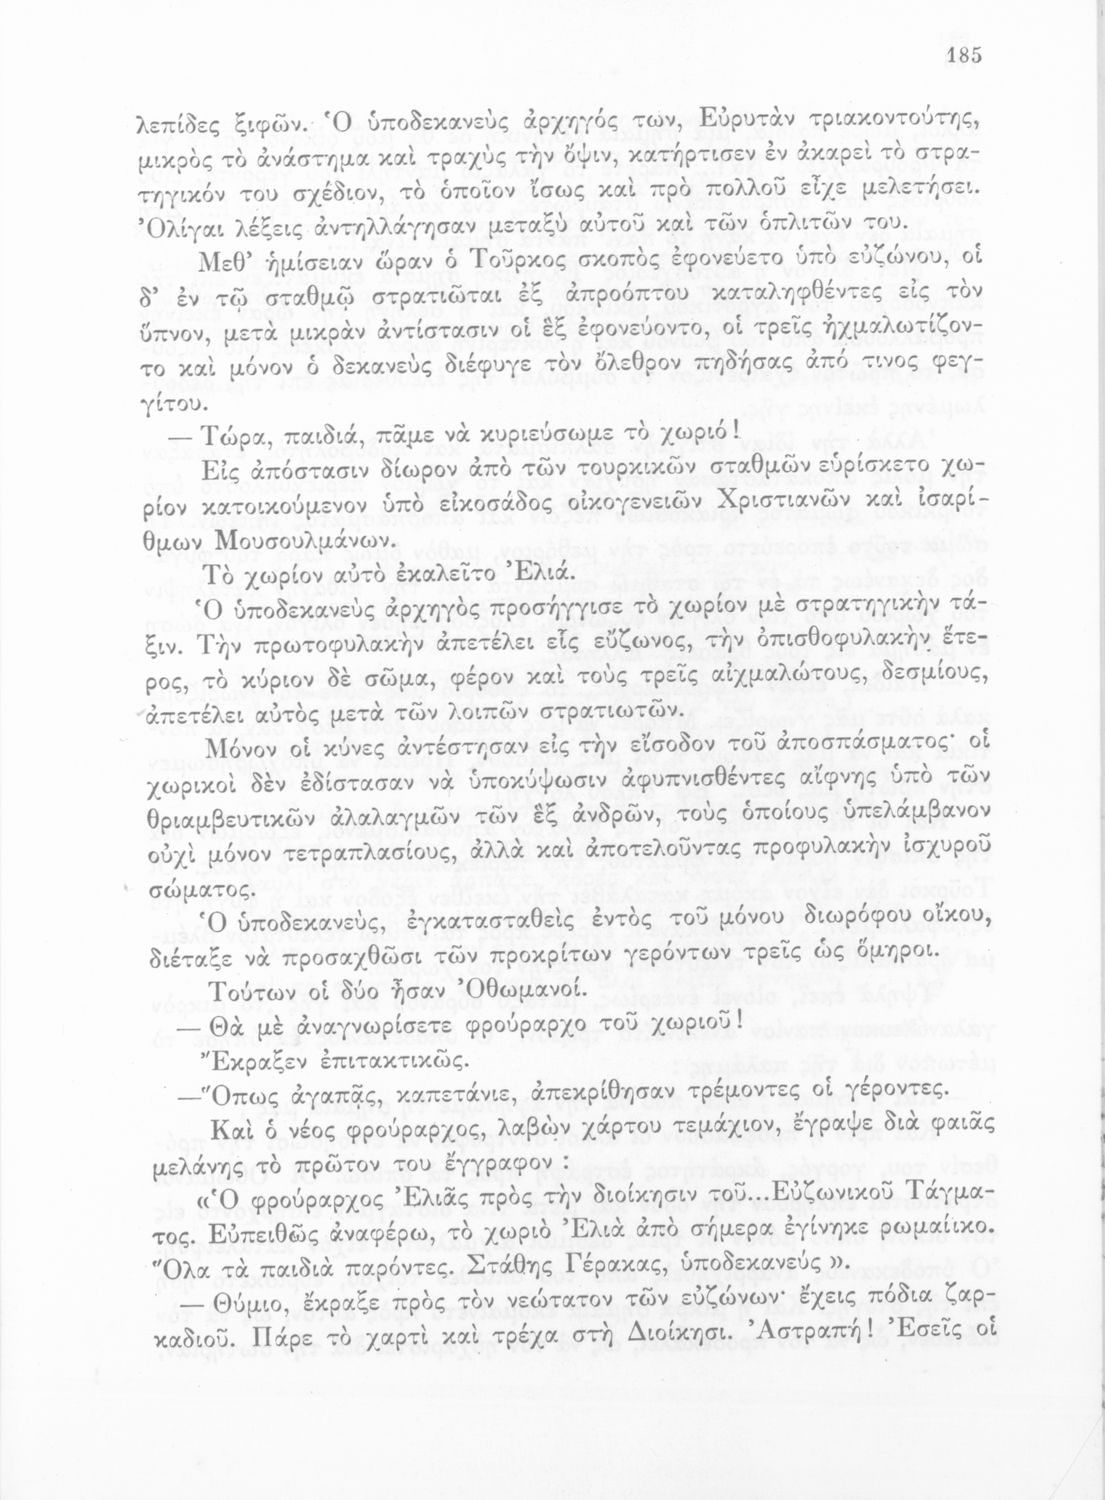 185
λεπίδες ξιφῶν. Ὁ ὑποδεκανεὺς ἀρχηγός των, Εὐρυτὰν τριακοντούτης,
μικρὸς τὸ ἀνάστημα καὶ τραχὺς τὴν ὄψιν, κατήρτισεν ἐν ἀκαρεὶ τὸ στρα-
τηγικόν του σχέδιον, τὸ ὁποῖον ἴσως καὶ πρὸ πολλοῦ εἶχε μελετήσει.
Ὀλίγαι λέξεις ἀντηλλάγησαν μεταξὺ αὐτοῦ καὶ τῶν ὁπλιτῶν του.
Μεθ’ ἡμίσειαν ὥραν ὁ Τοῦρκος σκοπὸς ἐφονεύετο ὑπὸ εὐζώνου, οἱ
δ’ ἐν τῷ σταθμῷ στρατιῶται ἐξ ἀπροόπτου καταληφθέντες εἰς τὸν
ὕπνον, μετὰ μικρὰν ἀντίστασιν οἱ ἓξ ἐφονεύοντο, οἱ τρεῖς ἠχμαλωτίζον-
το καὶ μόνον ὁ δεκανεὺς διέφυγε τὸν ὄλεθρον πηδήσας ἀπό τινος φεγ-
γίτου.
— Τώρα, παιδιά, πᾶμε νὰ κυριεύσωμε τὸ χωριό!
Εἰς ἀπόστασιν δίωρον ἀπὸ τῶν τουρκικῶν σταθμῶν εὑρίσκετο χω-
ρίον κατοικούμενον ὑπὸ εἰκοσάδος οἰκογενειῶν Χριστιανῶν καὶ ἰσαρί-
θμων Μουσουλμάνων.
Τὸ χωρίον αὐτὸ ἐκαλεῖτο Ἐλιά.
Ὁ ὑποδεκανεὺς ἀρχηγὸς προσήγγισε τὸ χωρίον μὲ στρατηγικὴν τά-
ξιν. Τὴν πρωτοφυλακὴν ἀπετέλει εἷς εὔζωνος, τὴν ὀπισθοφυλακὴν ἕτε-
ρος, τὸ κύριον δὲ σῶμα, φέρον καὶ τοὺς τρεῖς αἰχμαλώτους, δεσμίους,
ἀπετέλει αὐτὸς μετὰ τῶν λοιπῶν στρατιωτῶν.
Μόνον οἱ κύνες ἀντέστησαν εἰς τὴν εἴσοδον τοῦ ἀποσπάσματος· οἱ
χωρικοὶ δὲν ἐδίστασαν νὰ ὑποκύψωσιν ἀφυπνισθέντες αἴφνης ὑπὸ τῶν
θριαμβευτικῶν ἀλαλαγμῶν τῶν ἓξ ἀνδρῶν, τοὺς ὁποίους ὑπελάμβανον
οὐχὶ μόνον τετραπλασίους, ἀλλὰ καὶ ἀποτελοῦντας προφυλακὴν ἰσχυροῦ
σώματος.
Ὁ ὑποδεκανεύς, ἐγκατασταθεὶς ἐντὸς τοῦ μόνου διωρόφου οἴκου,
διέταξε νὰ προσαχθῶσι τῶν προκρίτων γερόντων τρεῖς ὡς ὅμηροι.
Τούτων οἱ δύο ἦσαν Ὀθωμανοί.
— Θὰ μὲ ἀναγνωρίσετε φρούραρχο τοῦ χωριοῦ!
Ἔκραξεν ἐπιτακτικῶς.
—Ὅπως ἀγαπᾷς, καπετάνιε, ἀπεκρίθησαν τρέμοντες οἱ γέροντες.
Καὶ ὁ νέος φρούραρχος, λαβὼν χάρτου τεμάχιον, ἔγραψε διὰ φαιᾶς
μελάνης τὸ πρῶτον του ἔγγραφον :
«Ὁ φρούραρχος Ἐλιᾶς πρὸς τὴν διοίκησιν τοῦ...Εὐζωνικοῦ Τάγμα-
τος. Εὐπειθῶς ἀναφέρω, τὸ χωριὸ Ἐλιὰ ἀπὸ σήμερα ἐγίνηκε ρωμαίικο.
Ὅλα τὰ παιδιὰ παρόντες. Στάθης Γέρακας, ὑποδεκανεύς ».
— Θύμιο, ἔκραξε πρὸς τὸν νεώτατον τῶν εὐζώνων· ἔχεις πόδια ζαρ-
καδιοῦ. Πάρε τὸ χαρτὶ καὶ τρέχα στὴ Διοίκησι. Ἀστραπή! Ἐσεῖς οἱ